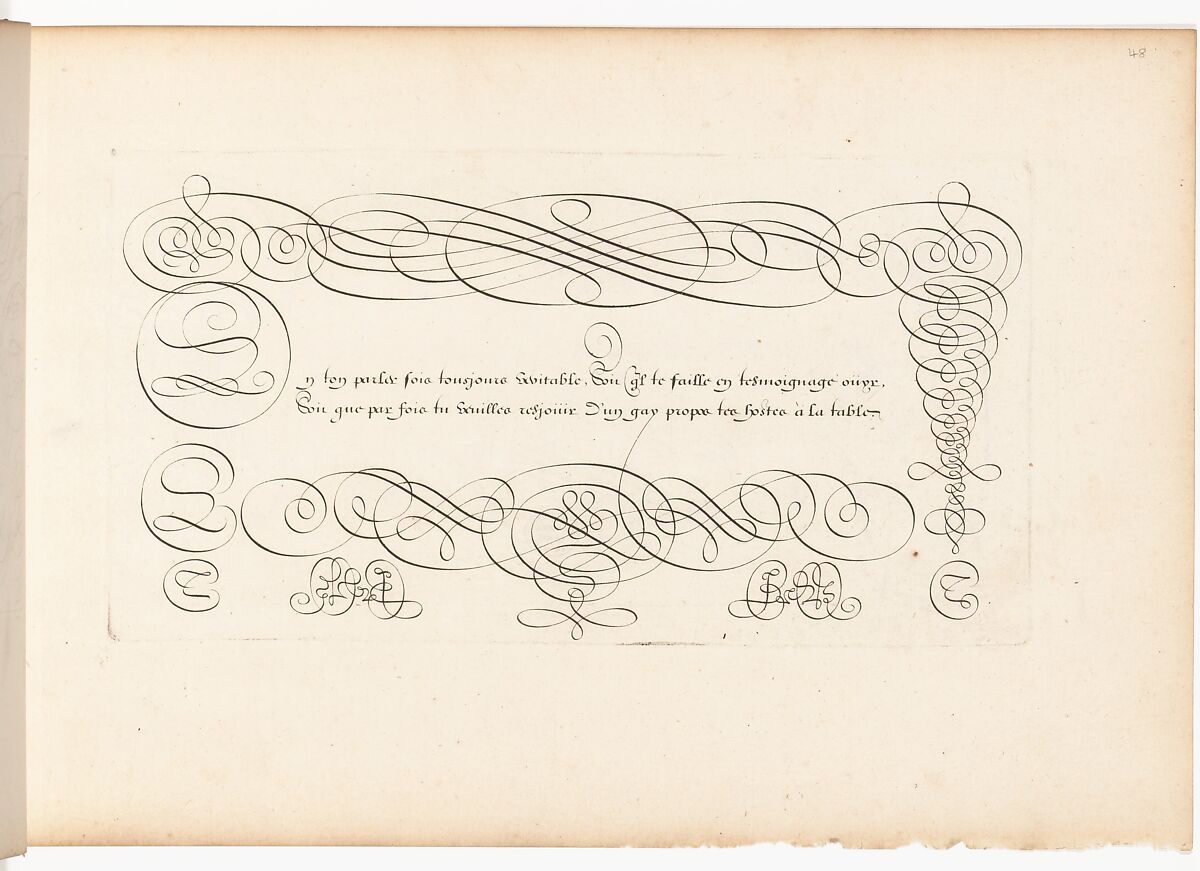 48
En ton parler sois tousjours veritable, Soit q'il te faille en tesmoignage oüyr,
Soit que par fois tu veuilles resjoüir D'un gay propos tes hostes à la table.